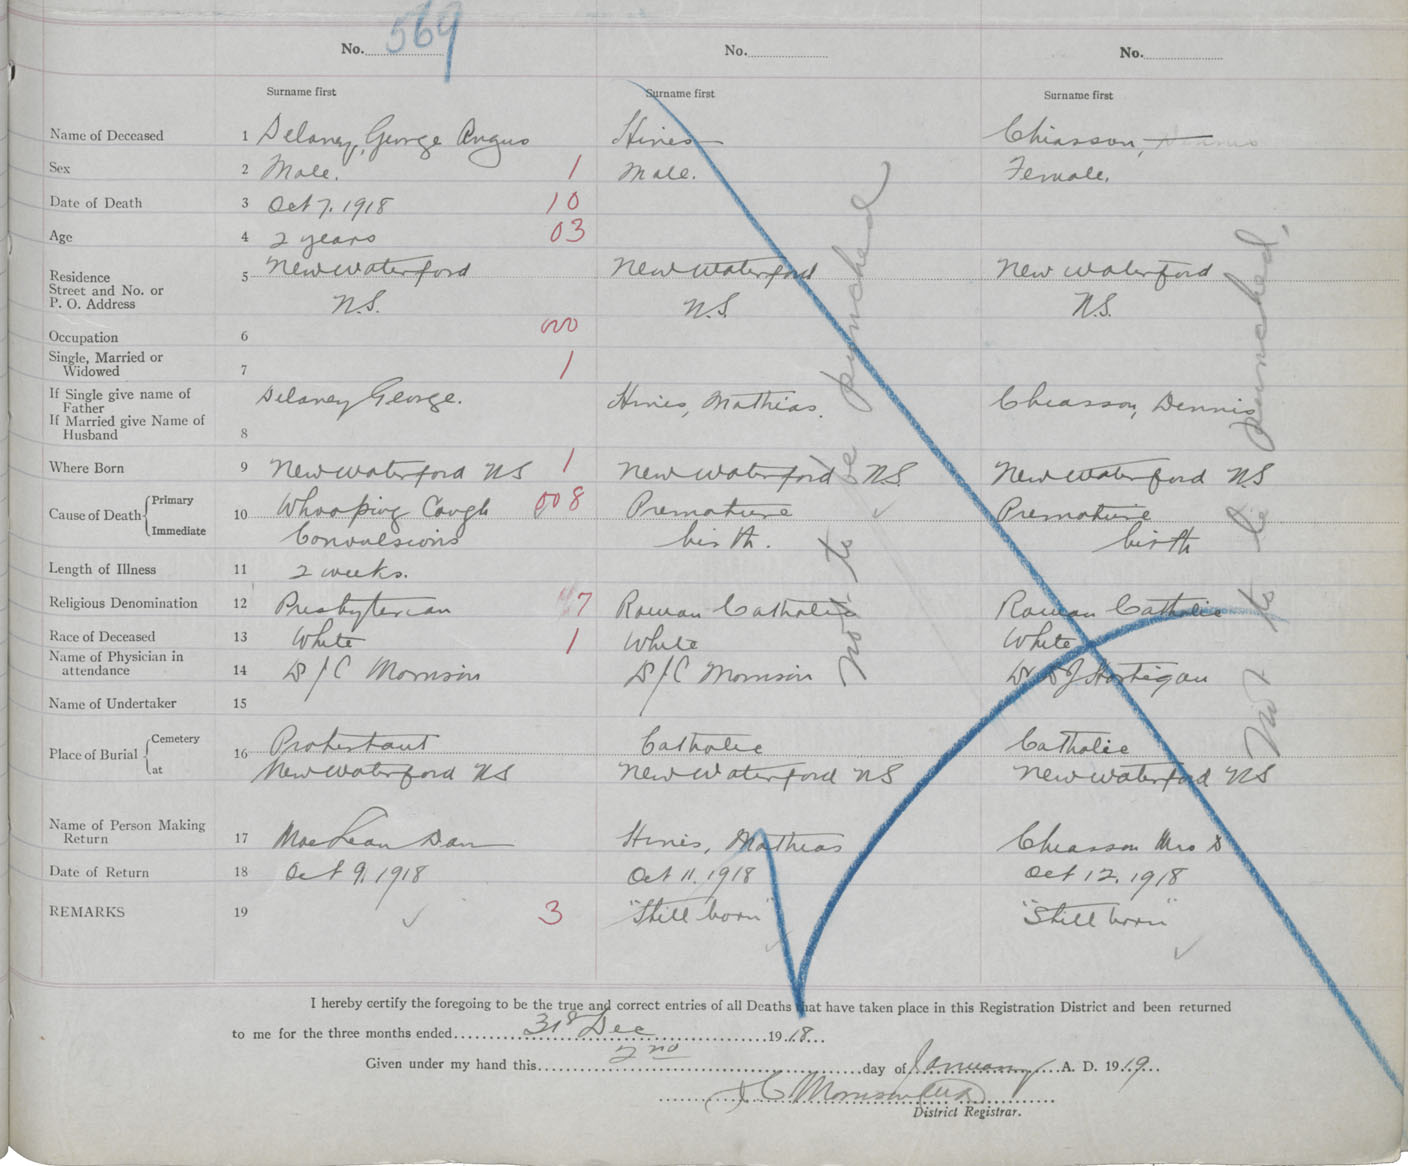 No. 569 No. No.
Surname first Surname first Surname first
Name of Deceased 1 Delaney, George Angus Hines Chiasson, Dennis
Sex 2 Male. 1 Male. Female.
Date of Death 3 Oct 7, 1918 10
Age 4 2 years 03
Residence 5 New Waterford New Waterford New Waterford
Street and No. or
P. O. Address N.S. N.S. N.S.
Occupation 6 000
Single, Married or
Widowed 7 1
If Single give name of Delaney George. Hines, Mathias. Chiasson, Dennis
Father
If Married give Name of
Husband 8
Where Born 9 New Waterford NS 1 New Waterford N.S. New Waterford NS
Cause of Death Primary 10 Whooping Cough 008 Premature Premature
Immediate Convulsions birth. birth
Length of Illness 11 2 weeks.
Religious Denomination 12 Presbyterian 7 Roman Catholic Roman Catholic
Race of Deceased 13 White 1 White White
Name of Physician in
attendance 14 J C Morrison J C Morrison Dr J Hartigan
Name of Undertaker 15
Place of Burial Cemetery 16 Protestant Catholic Catholic
at New Waterford NS New Waterford NS New Waterford NS
Name of Person Making
Return 17 MacLean Dan Hines, Mathias Chiasson Mrs D
Date of Return 18 Oct 9, 1918 Oct 11, 1918 Oct 12, 1918
REMARKS 19 3 "Still born" "Still born"
not to be punched
Not to be punched.
I hereby certify the foregoing to be the true and correct entries of all Deaths that have taken place in this Registration District and been returned
to me for the three months ended 31st Dec 1918
Given under my hand this 2nd day of January A. D. 1919
J C Morrison
District Registrar.